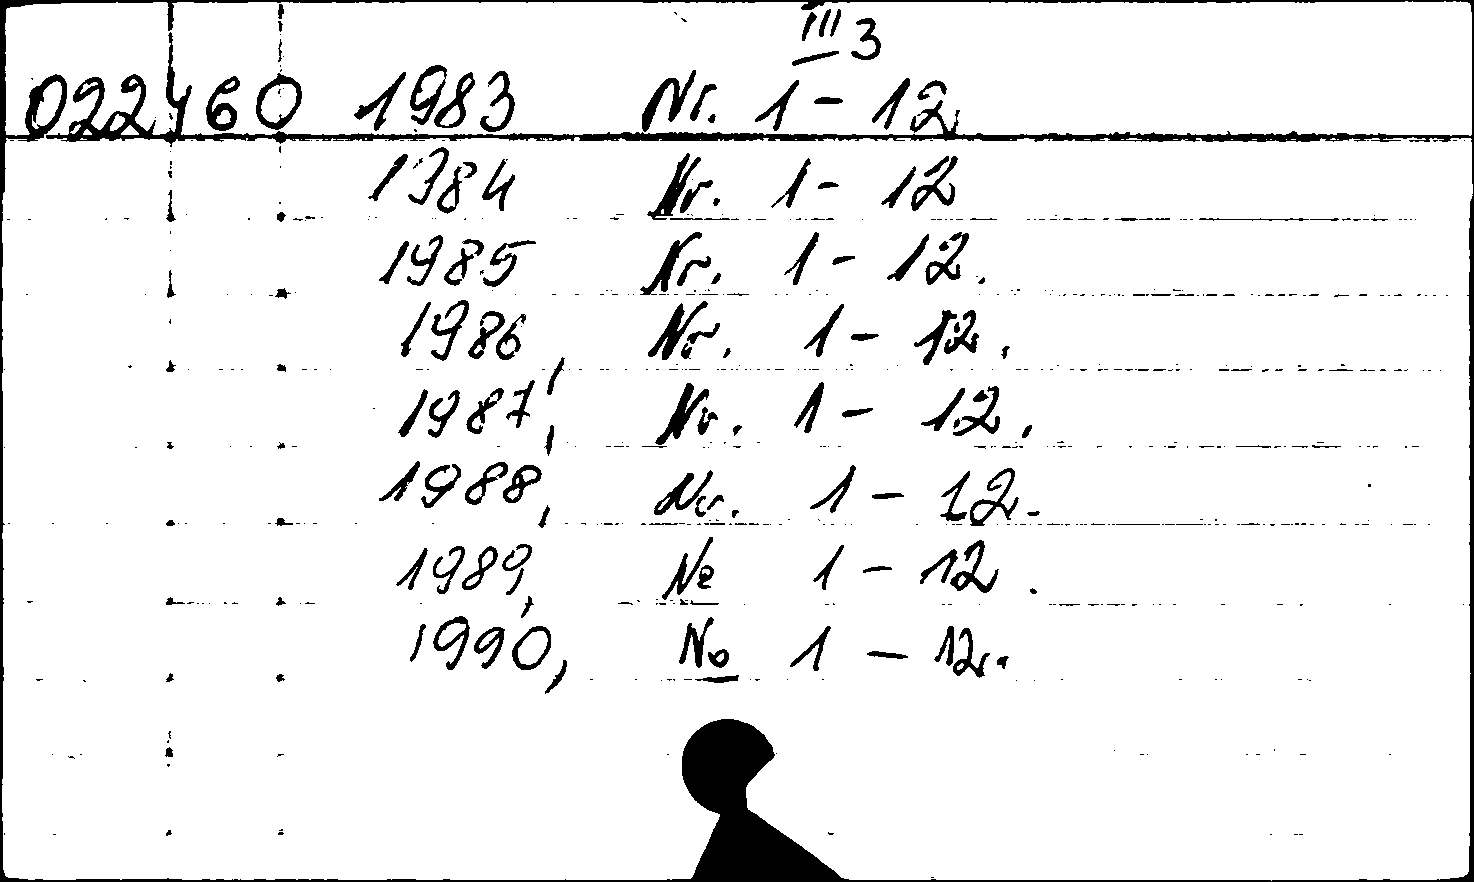 III 3
022460 1983 Nr. 1 - 12
1984 Nr. 1 - 12
1985 Nr. 1 - 12.
1986, Nr. 1 - 12.
1987, Nr. 1 - 12.
1988, Nr. 1 - 12.
1989, Nr 1 - 12.
1990, No 1 - 12.